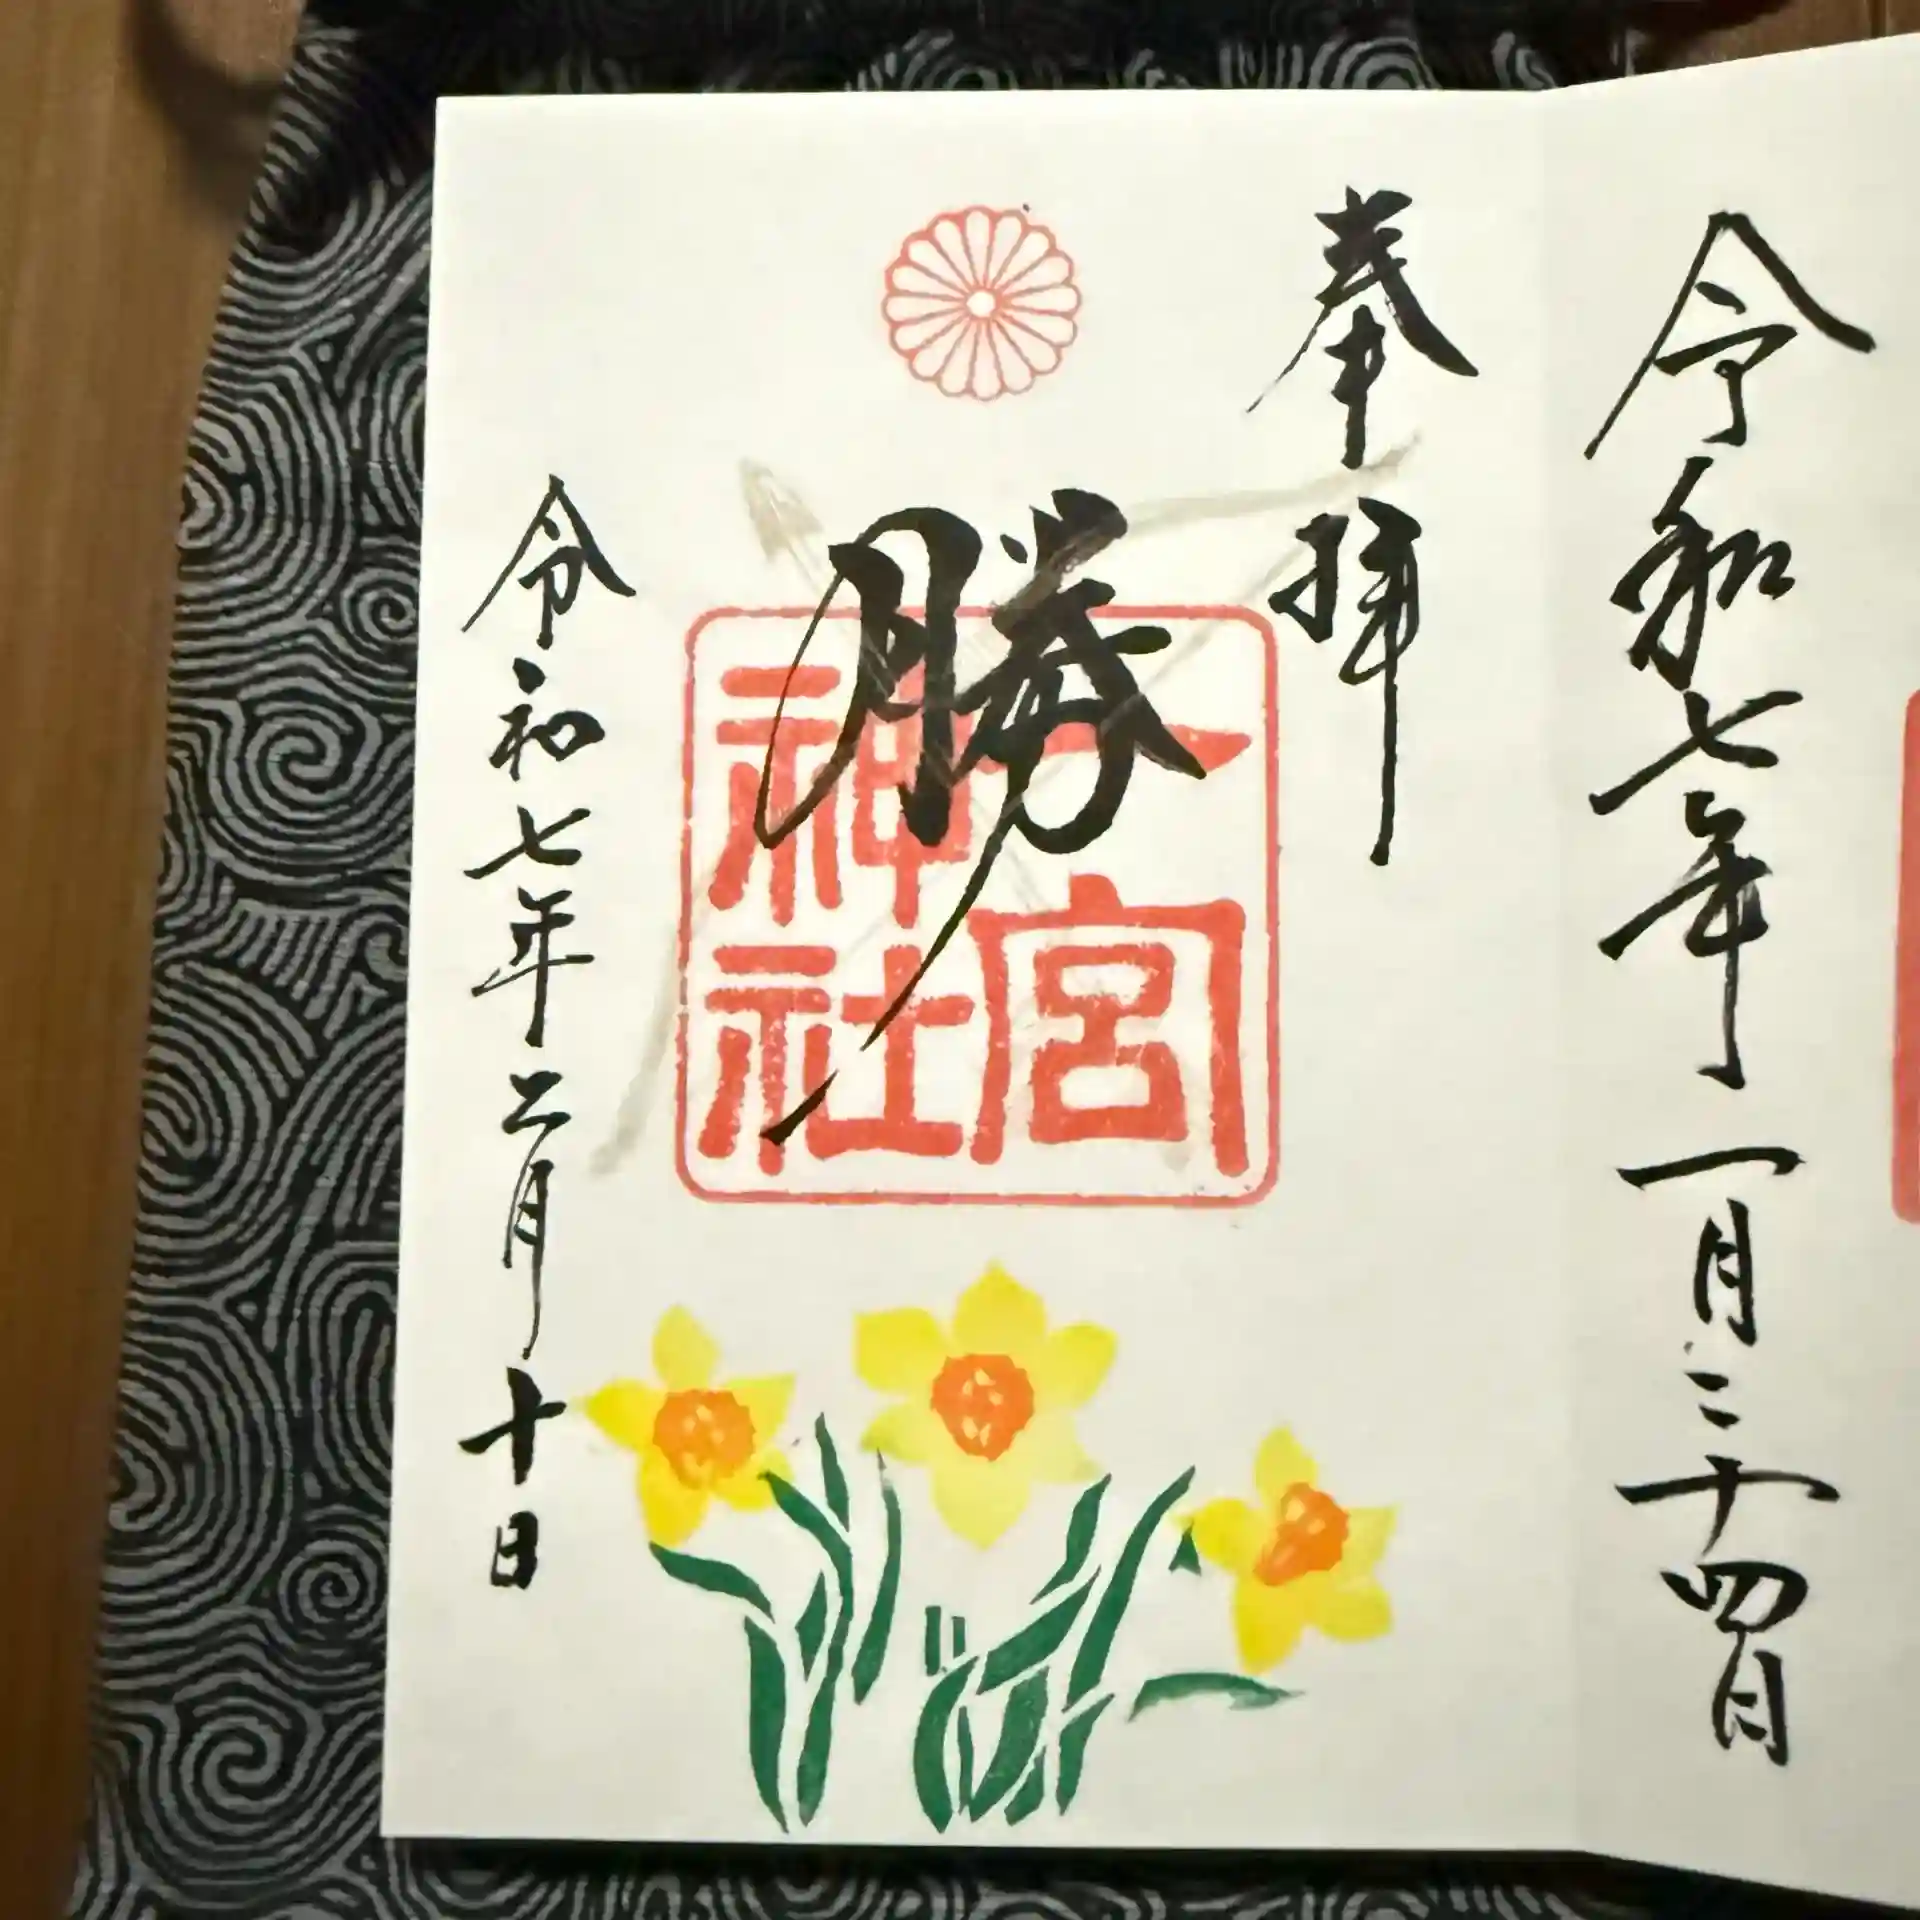 令和七年一月二十四日
奉拝
勝
一宮
神社
令和七年二月十日